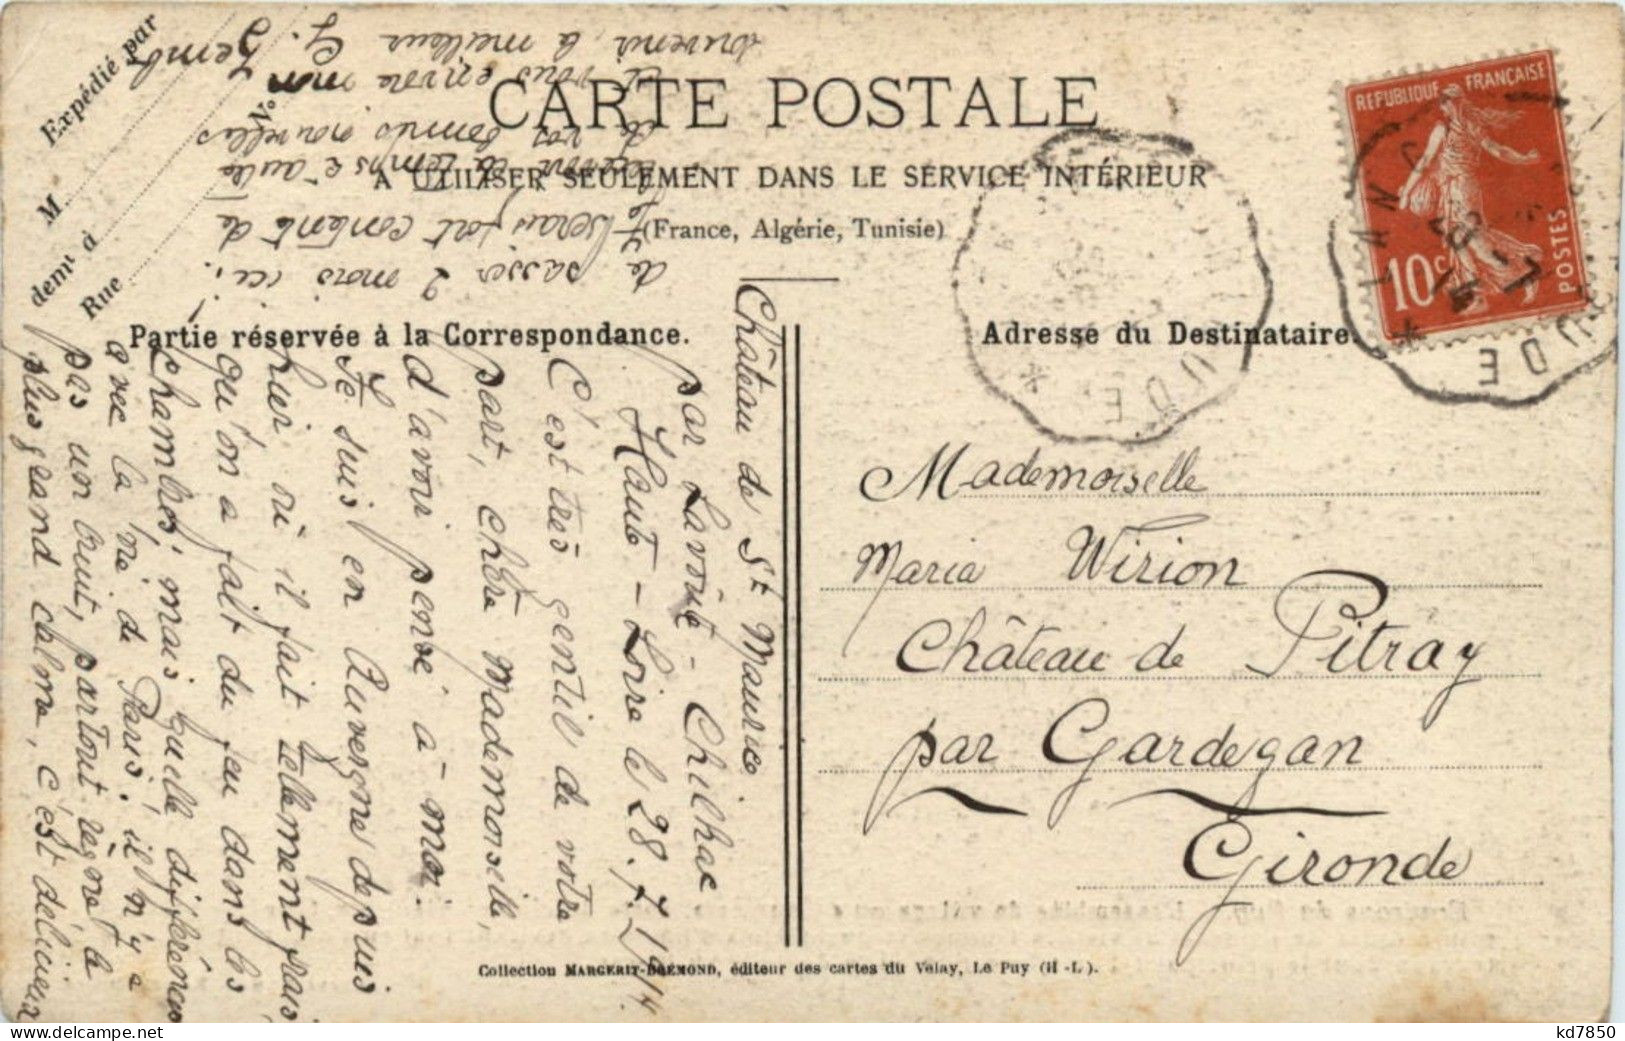 Expédié par
M
demt à
Rue
No
CARTE POSTALE
A UTILISER SEULEMENT DANS LE SERVICE INTÉRIEUR
(France, Algérie, Tunisie)
REPUBLIQUE FRANÇAISE
10c
POSTES
Partie réservée à la Correspondance.
Adresse du Destinataire.
Château de St Maurice
par Lavoûte-Chilhac
Haute-Loire le 28.7.1914
C'est très gentil de votre
part, chère Mademoiselle,
d'avoir pensé à moi.
Je suis en Auvergne depuis
hier où il fait tellement frais
qu'on a fait du feu dans les
chambres, mais quelle différence
avec la vie de Paris! il n'y a
pas un bruit, partout règne le
plus grand calme, c'est délicieux
de passer 2 mois ici!
Je serais fort contente de
de vos bonnes nouvelles
et vous envoie mon
souvenir, la meilleur G.
Mademoiselle
Maria Wirion
Château de Pitray
par Gardegan
Gironde
Collection MARGERIT-BRÉMOND, éditeur des cartes du Velay, Le Puy (H.-L.).
kd7850